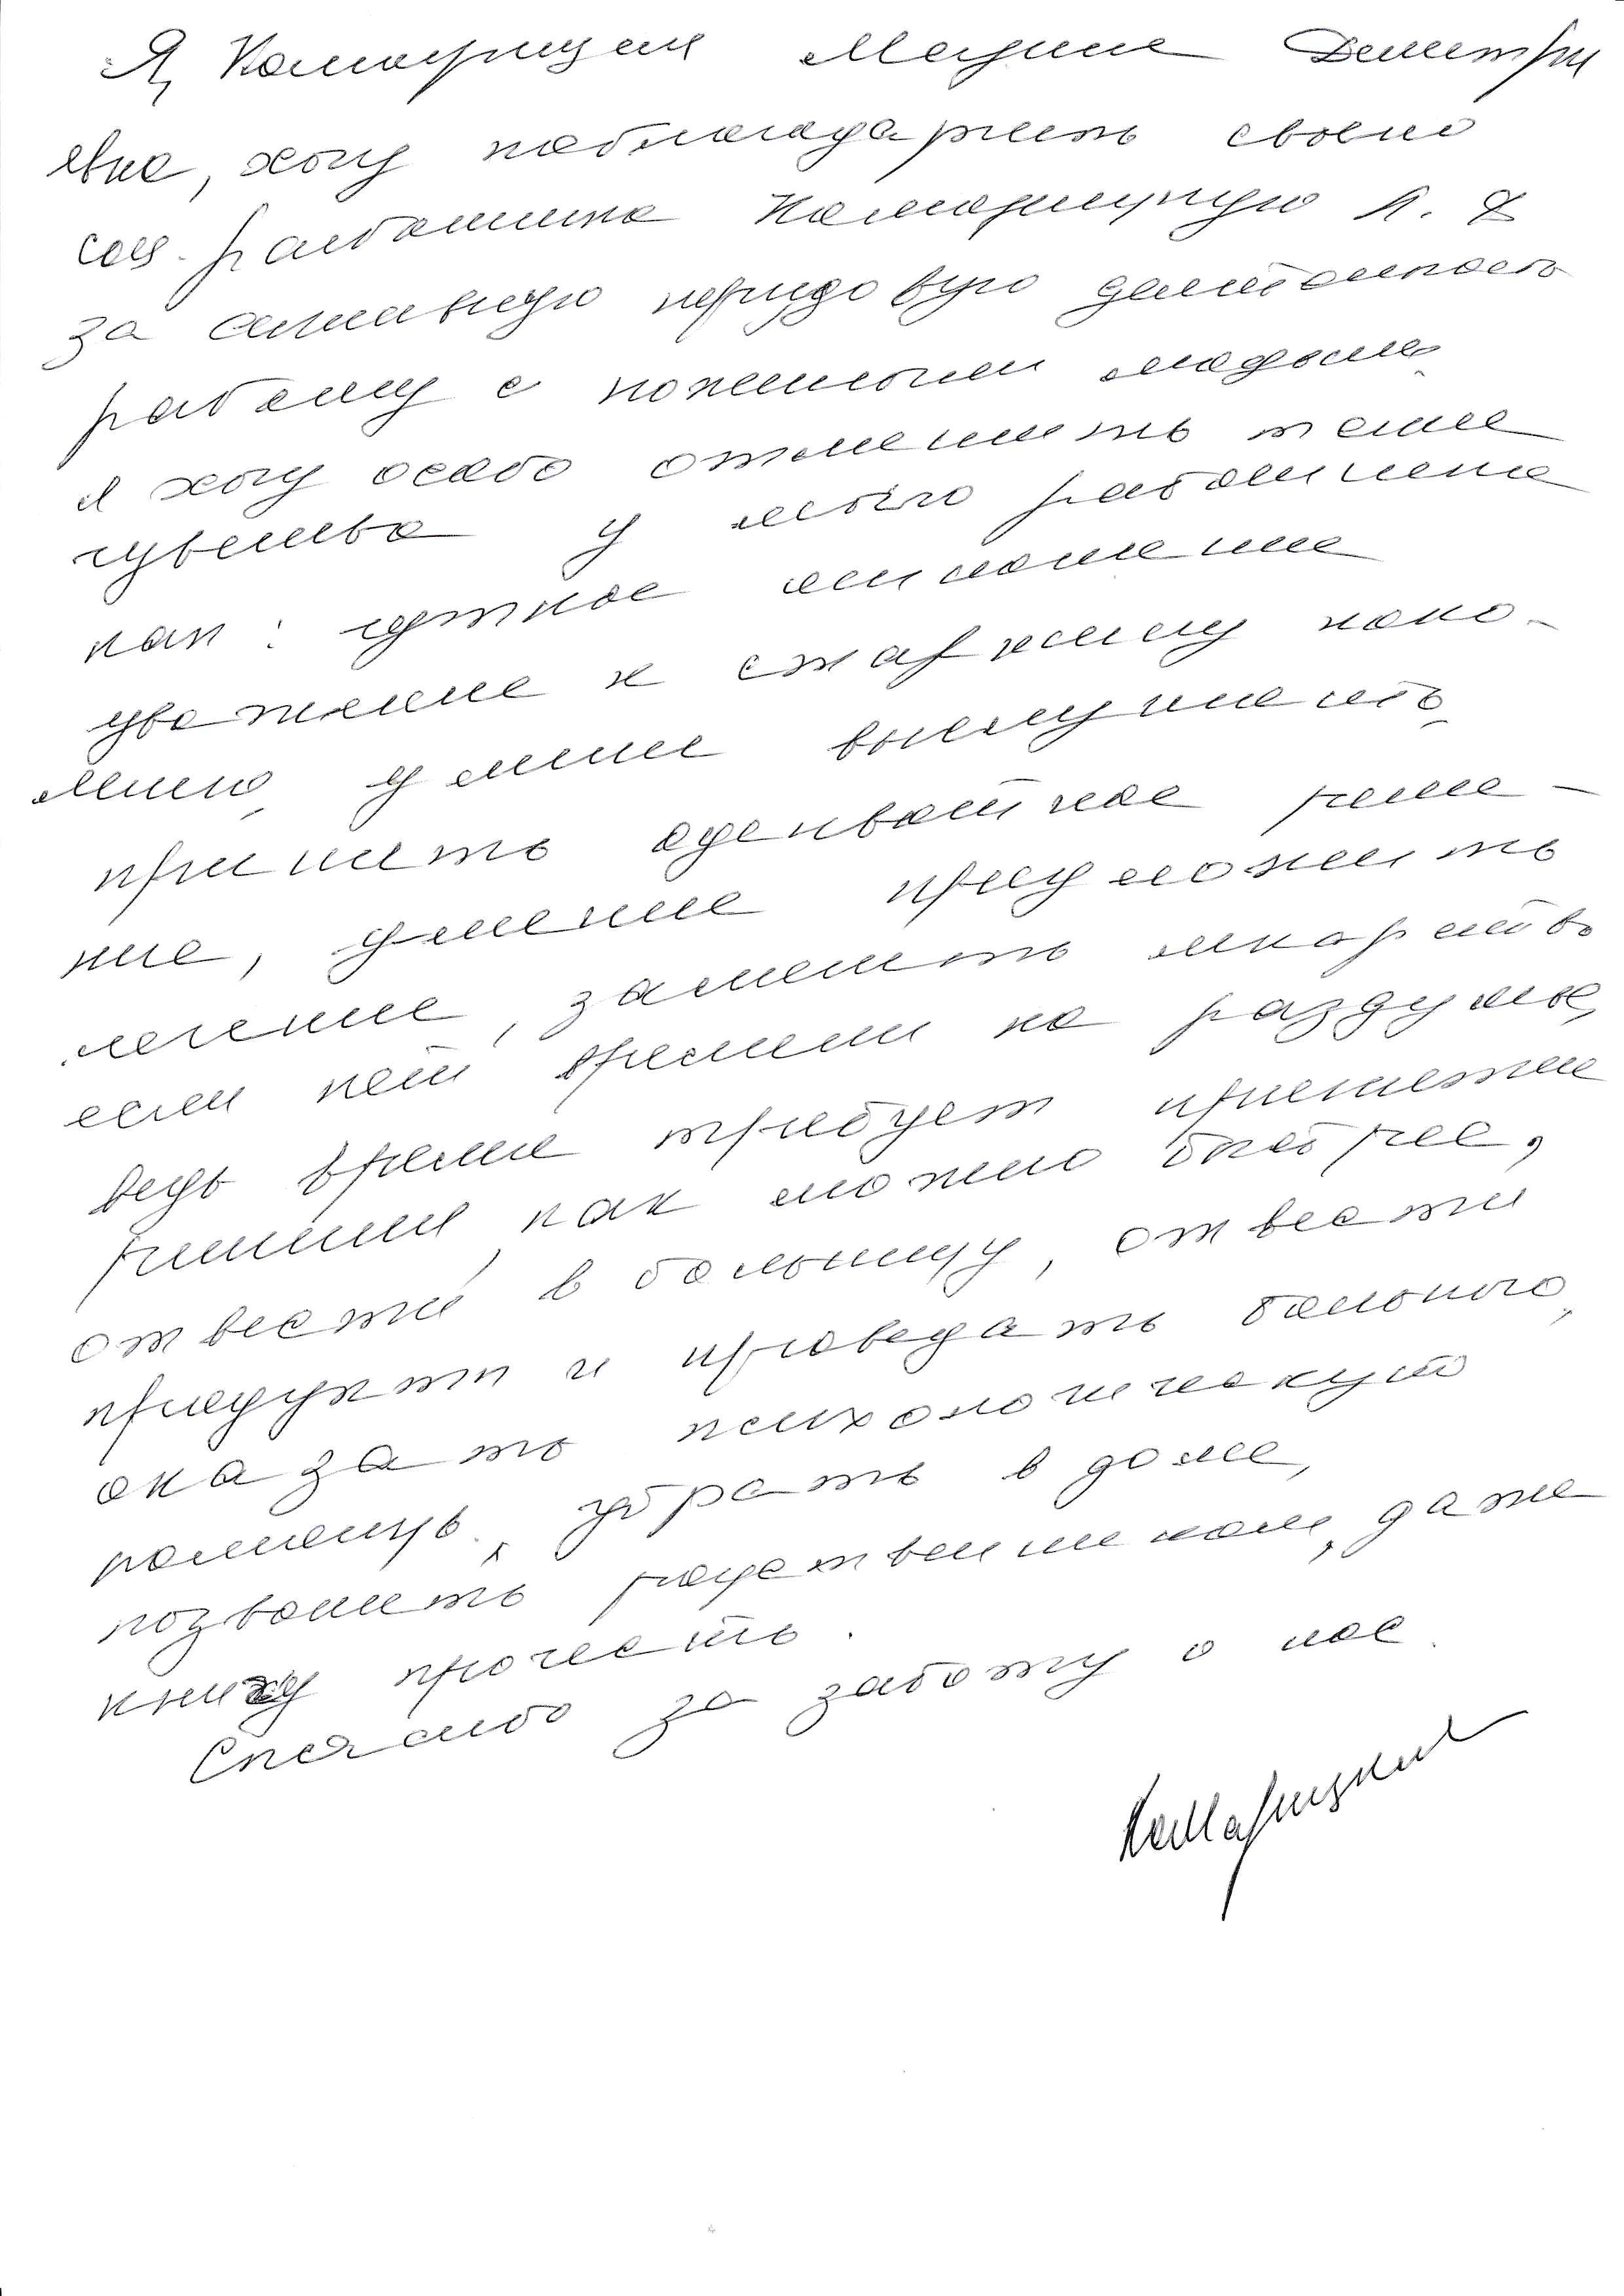 Я, Камарицкая Мария Дмитри
евна, хочу поблагодарить своего
соц. работника Камарицкую Л. Д
за активную трудовую деятельность
работу с пожилыми людьми.
я хочу особо отметить такие
чувства у моего работника
как: чуткое отношение
уважение к старшему поко-
лению, умение выслушать,
принять адекватное реше-
ние, умение предложить
лечение, заменить лекарство
если нет времени на раздумье,
ведь время требует принятие
решения, как можно быстрее,
отвести в больницу, отвести
продукты и проведать больного,
оказать психологическую
помощь, убрать в доме,
позвонить родственникам, даже
книгу прочесть.
Спасибо за заботу о нас.
Камарицкая